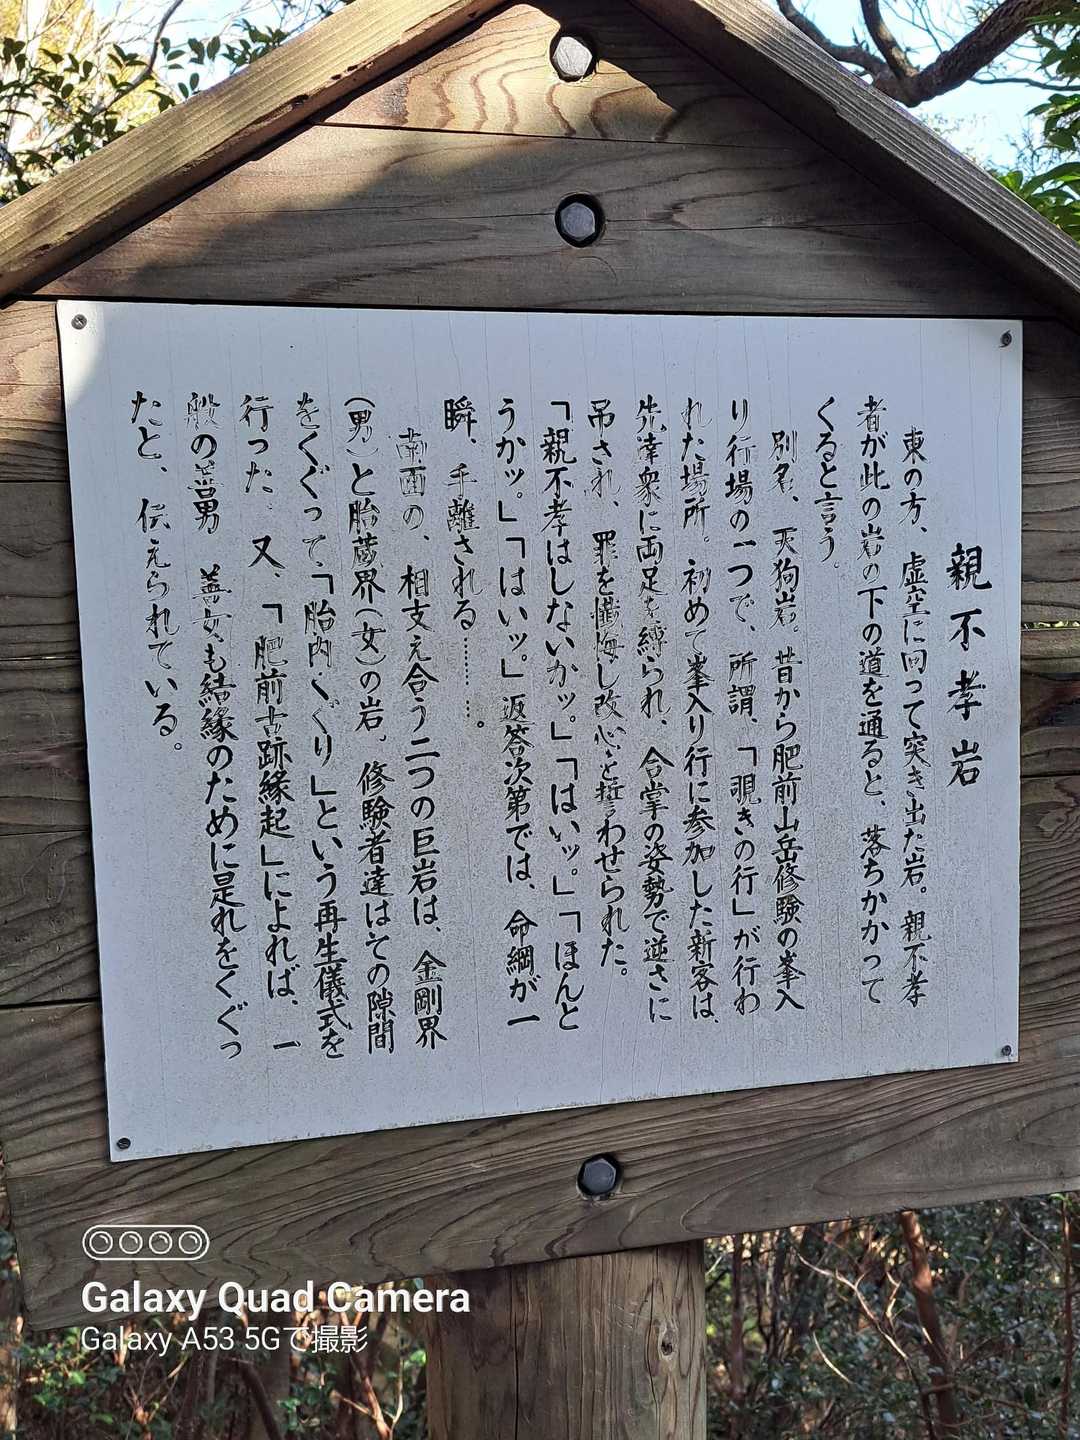 親不孝岩
東の方、虚空に向って突き出た岩。親不孝
者が此の岩の下の道を通ると、落ちかかって
くると言う。
別名、天狗岩。昔から肥前山岳修験の峯入
り行場の一つで、所謂、「覗きの行」が行わ
れた場所。初めて峯入り行に参加した新客は、
先達衆に両足を縛られ、合掌の姿勢で逆さに
吊され、罪を懺悔し改心を誓わせられた。
「親不孝はしないかッ。」「はいッ。」「ほんと
うかッ。」「はいッ。」返答次第では、命綱が一
瞬、手離される………。
南面の、相支え合う二つの巨岩は、金剛界
(男)と胎蔵界(女)の岩。修験者達はその隙間
をくぐって「胎内くぐり」という再生儀式を
行った。又、「肥前古跡縁起」によれば、一
般の善男 善女も結縁のために是れをくぐっ
たと、伝えられている。
Galaxy Quad Camera
Galaxy A53 5Gで撮影